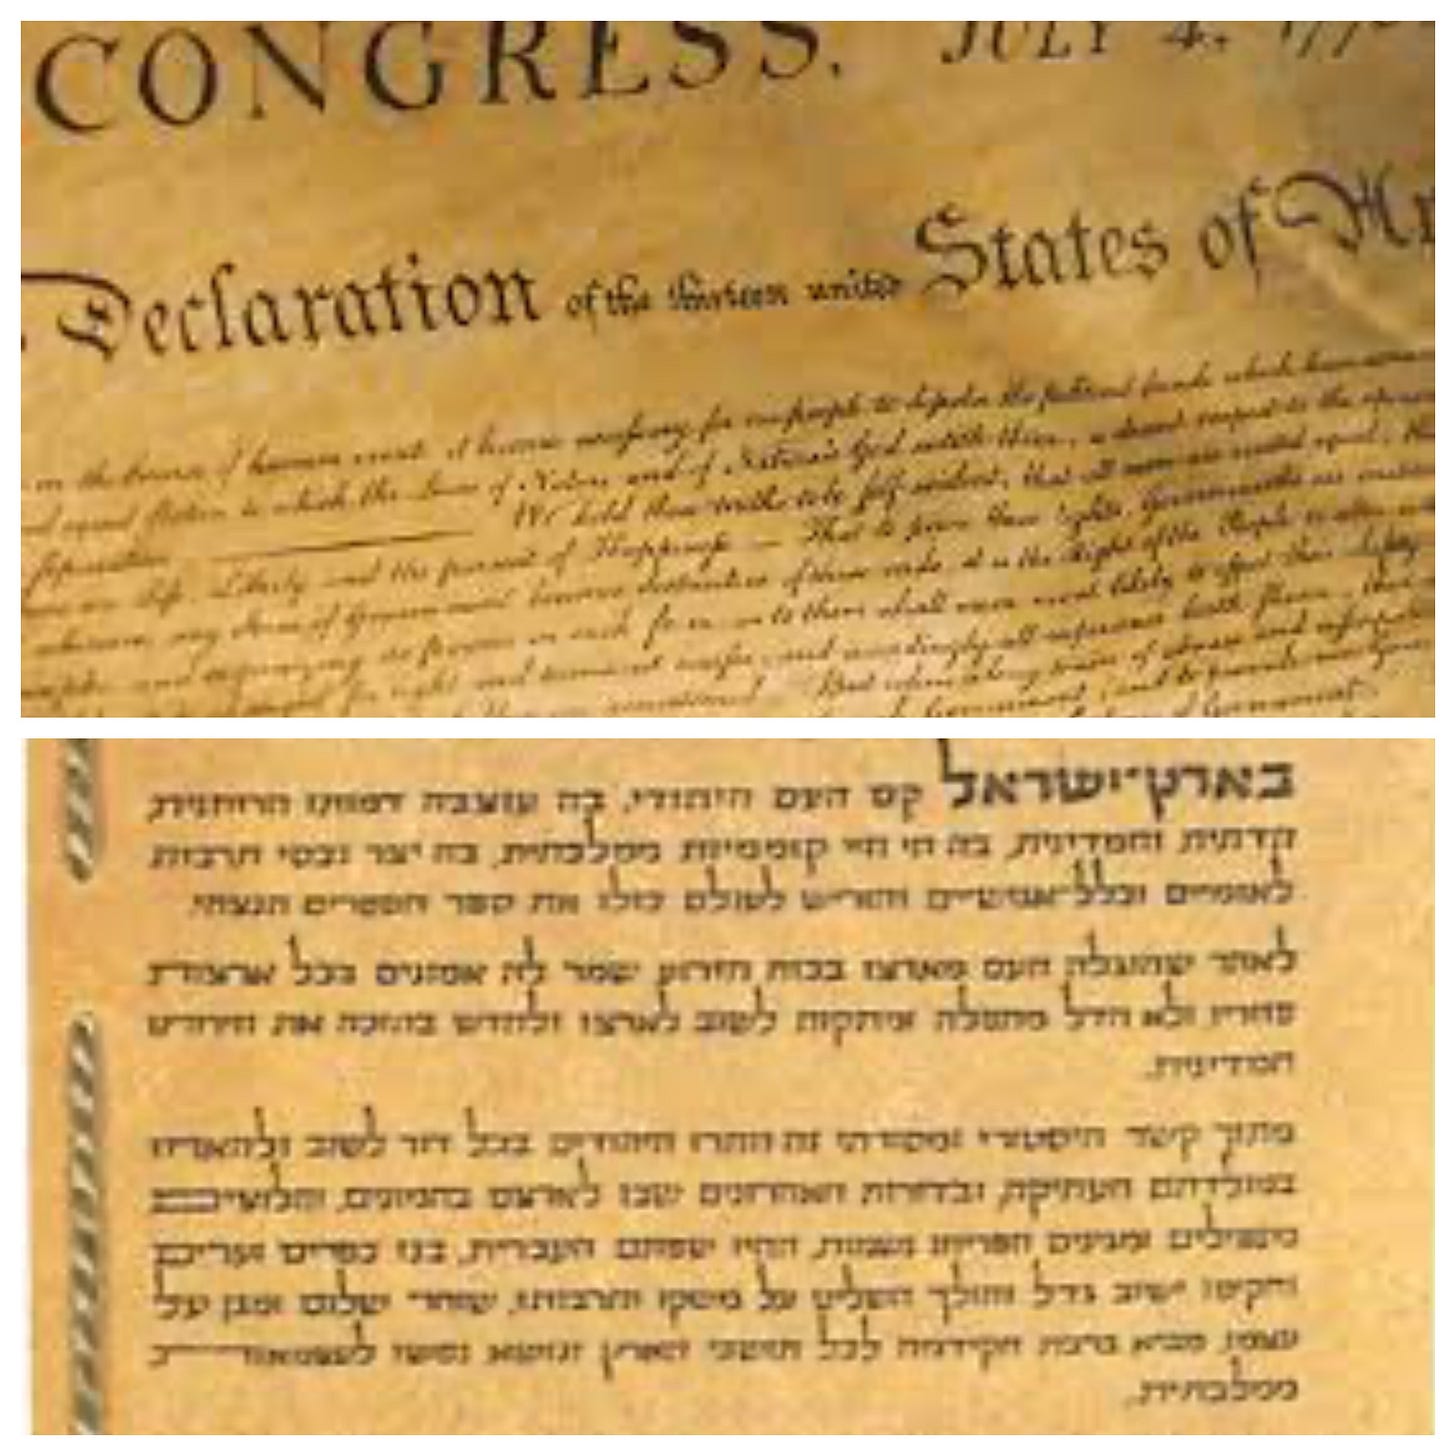 CONGRESS. JULY 4, 177
Declaration of the thirteen united States of
in the Course of human events, it becomes necessary for one people to dissolve the political bands which have
and equal station to which the Laws of Nature and of Nature's God entitle them, a decent respect to the
separation. We hold these truths to be self-evident, that all men are created equal, that
are Life, Liberty and the pursuit of Happiness.— That to secure these rights, Governments are
whenever any Form of Government becomes destructive of these ends, it is the Right of the People to alter
and organizing its powers in such form, as to them shall seem most likely to effect their Safety
and accordingly all experience hath shewn, that
But when a long train of abuses and
Government, and to provide new
of Government.
בארץ־ישראל קם העם היהודי, בה עוצבה דמותו הרוחנית,
הדתית והמדינית, בה חי חיי קוממיות ממלכתית, בה יצר נכסי תרבות
לאומיים וכלל־אנושיים והוריש לעולם כולו את ספר הספרים הנצחי.
לאחר שהוגלה העם מארצו בכוח הזרוע שמר לה אמונים בכל ארצות
פזוריו, ולא חדל מתפלה ומתקוה לשוב לארצו ולחדש בתוכה את חירותו
המדינית.
מתוך קשר היסטורי ומסורתי זה חתרו היהודים בכל דור לשוב ולהאחז
במולדתם העתיקה, ובדורות האחרונים שבו לארצם בהמונים, וחלוצים
מעפילים ומגינים הפריחו נשמות, החיו שפתם העברית, בנו כפרים וערים
והקימו ישוב גדל והולך השליט על משקו ותרבותו, שוחר שלום ומגן על
עצמו, מביא ברכת הקידמה לכל תושבי הארץ ונושא נפשו לעצמאות
ממלכתית.